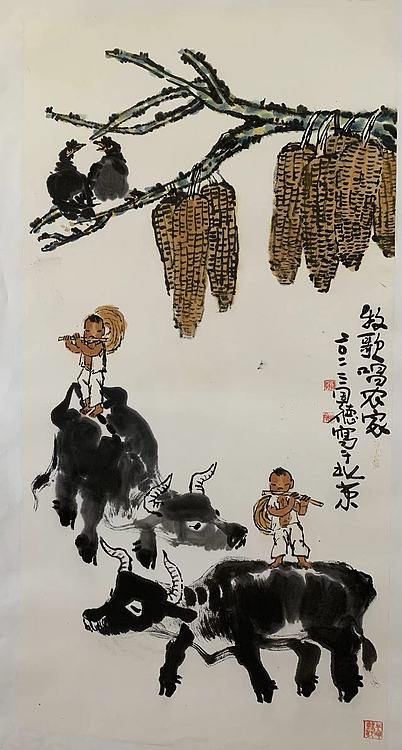 牧歌唱农家
二〇一三国德寫于北京